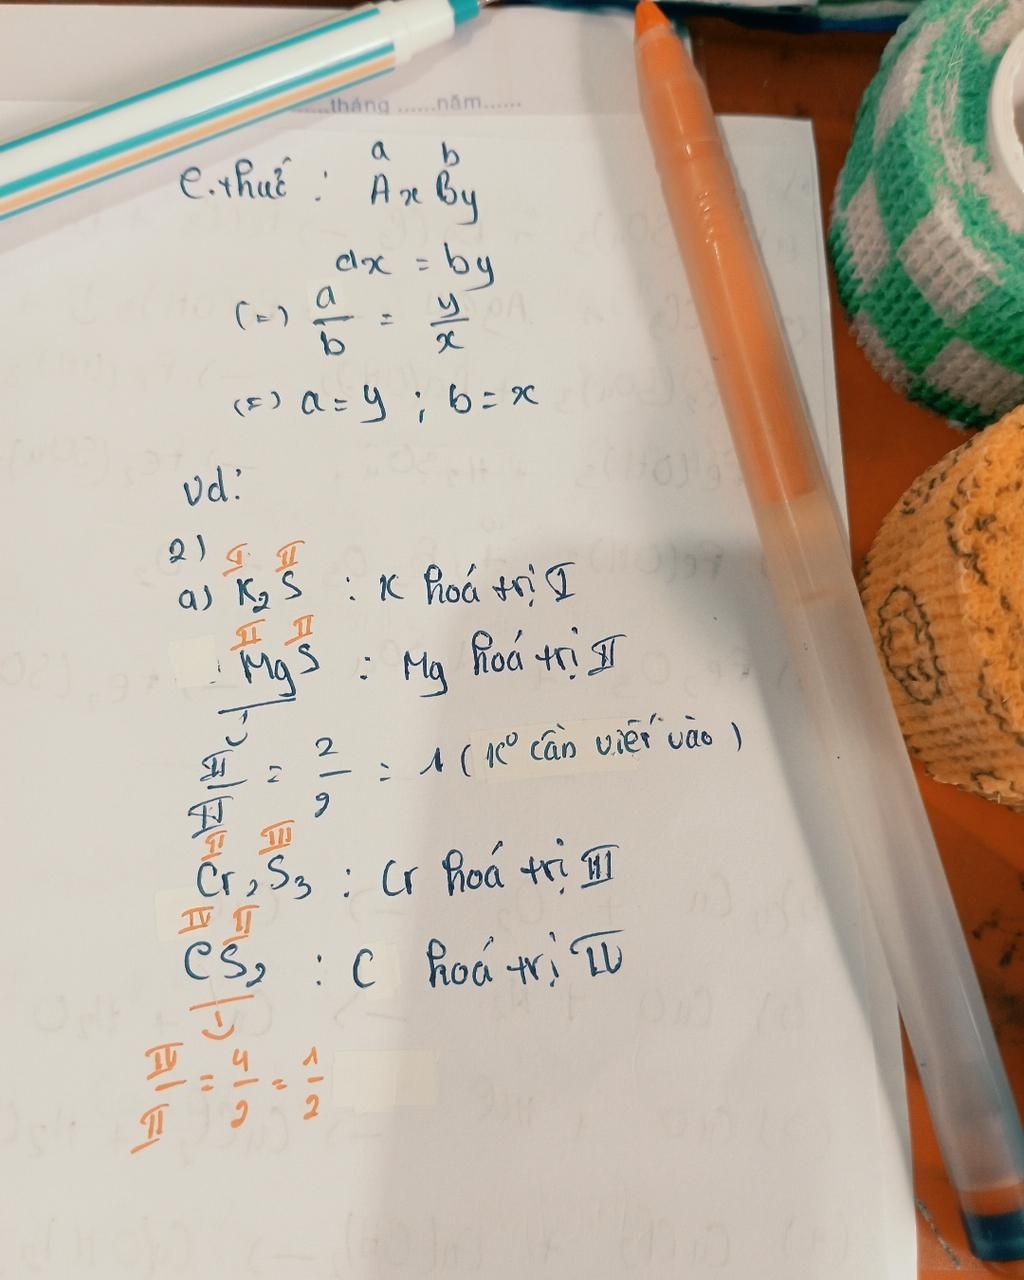 ......tháng ......năm......
C.thức : a b
AxBy
ax = by
(=) a/b = y/x
(=) a = y ; b = x
Vd:
2)
I II
a) K₂S : K hoá trị I
II II
MgS : Mg hoá trị II
II/II = 2/2 = 1 (K⁰ cần viết vào)
II III
Cr₂S₃ : Cr hoá trị III
IV II
CS₂ : C hoá trị IV
IV/II = 4/2 = 1/2